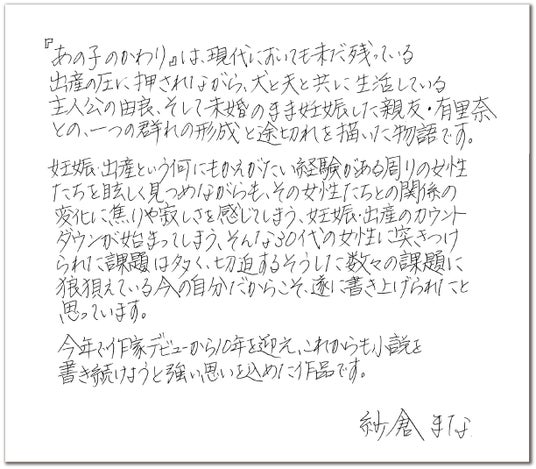 『あの子のかわり』は、現代においても未だ残っている
出産の圧に押されながら、犬と夫と共に生活している
主人公の由良、そして未婚のまま妊娠した親友・有里奈
との、一つの群れの形成と途切れを描いた物語です。
妊娠・出産という何にもかえがたい経験がある周りの女性
たちを眩しく見つめながらも、その女性たちとの関係の
変化に焦りや寂しさを感じてしまう、妊娠・出産のカウント
ダウンが始まってしまう、そんな30代の女性に突きつけ
られた課題は多く、切迫するそうした数々の課題に
狼狽えている今の自分だからこそ、遂に書き上げられたと
思っています。
今年で作家デビューから10年を迎え、これからも小説を
書き続けようと強い思いを込めた作品です。
紗倉まな